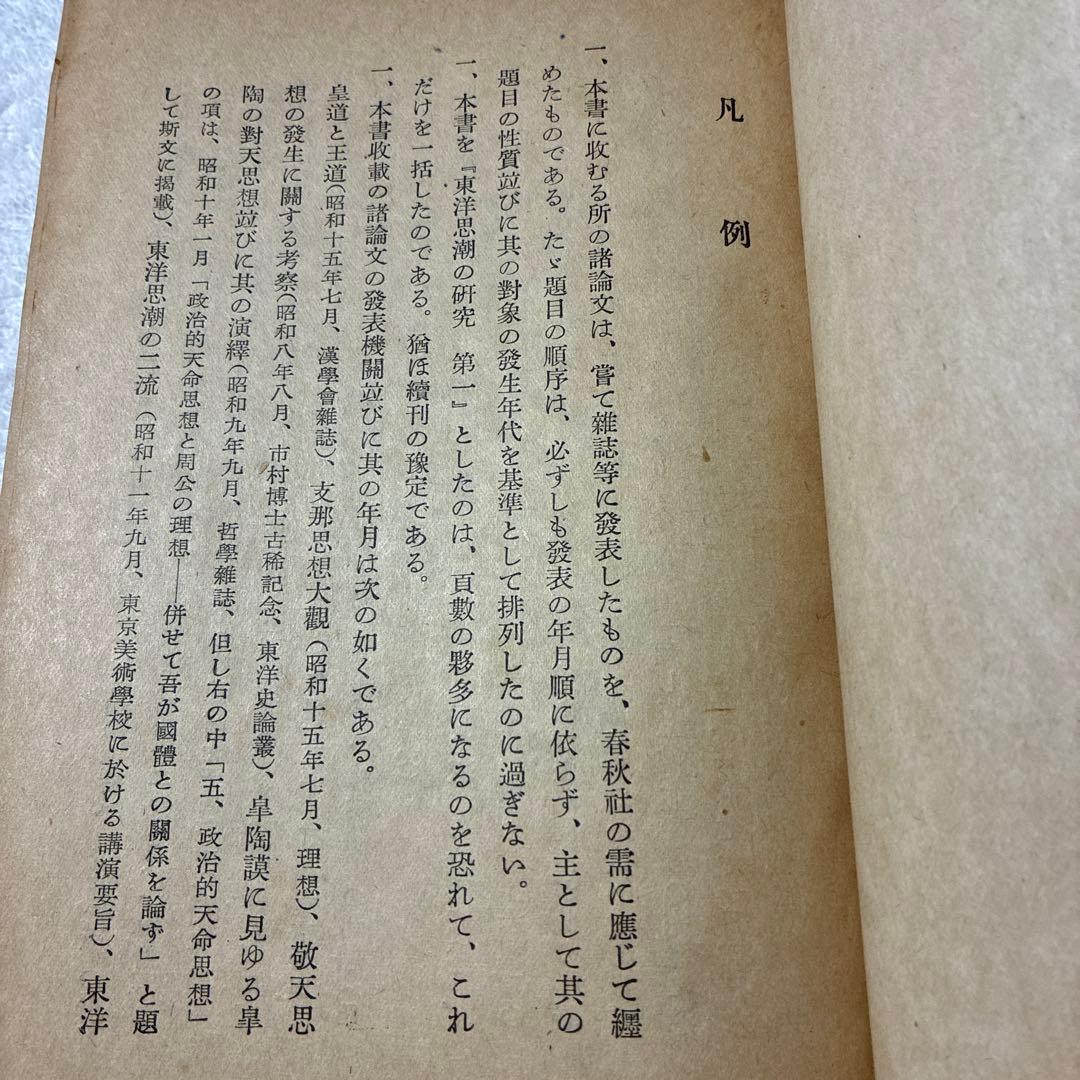 凡例
一、本書に收むる所の諸論文は、嘗て雜誌等に發表したものを、春秋社の需に應じて纒
めたものである。たゞ題目の順序は、必ずしも發表の年月順に依らず、主として其の
題目の性質竝びに其の對象の發生年代を基準として排列したのに過ぎない。
一、本書を『東洋思潮の硏究　第一』としたのは、頁數の夥多になるのを恐れて、これ
だけを一括したのである。猶ほ續刊の豫定である。
一、本書收載の諸論文の發表機關竝びに其の年月は次の如くである。
皇道と王道(昭和十五年七月、漢學會雜誌)、支那思想大觀(昭和十五年七月、理想)、敬天思
想の發生に關する考察(昭和八年八月、市村博士古稀記念、東洋史論叢)、皐陶謨に見ゆる皐
陶の對天思想竝びに其の演繹(昭和九年九月、哲學雜誌、但し右の中「五、政治的天命思想」
の項は、昭和十年一月「政治的天命思想と周公の理想——併せて吾が國體との關係を論ず」と題
して斯文に揭載)、東洋思潮の二流(昭和十一年九月、東京美術學校に於ける講演要旨)、東洋